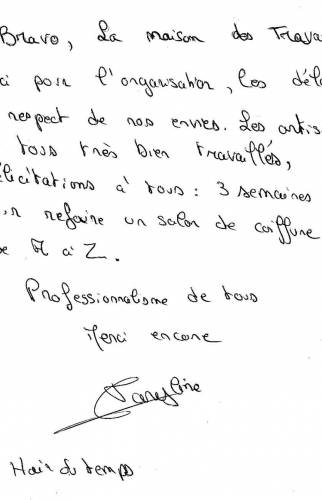 Bravo, La maison des Trava
ci pour l'organisation, les déla
respect de nos envies. Les artis
tous très bien travaillés,
élicitations à tous : 3 semaines
refaire un salon de coiffure
A à Z.
Professionnalisme de tous
Merci encore
Hair du temps